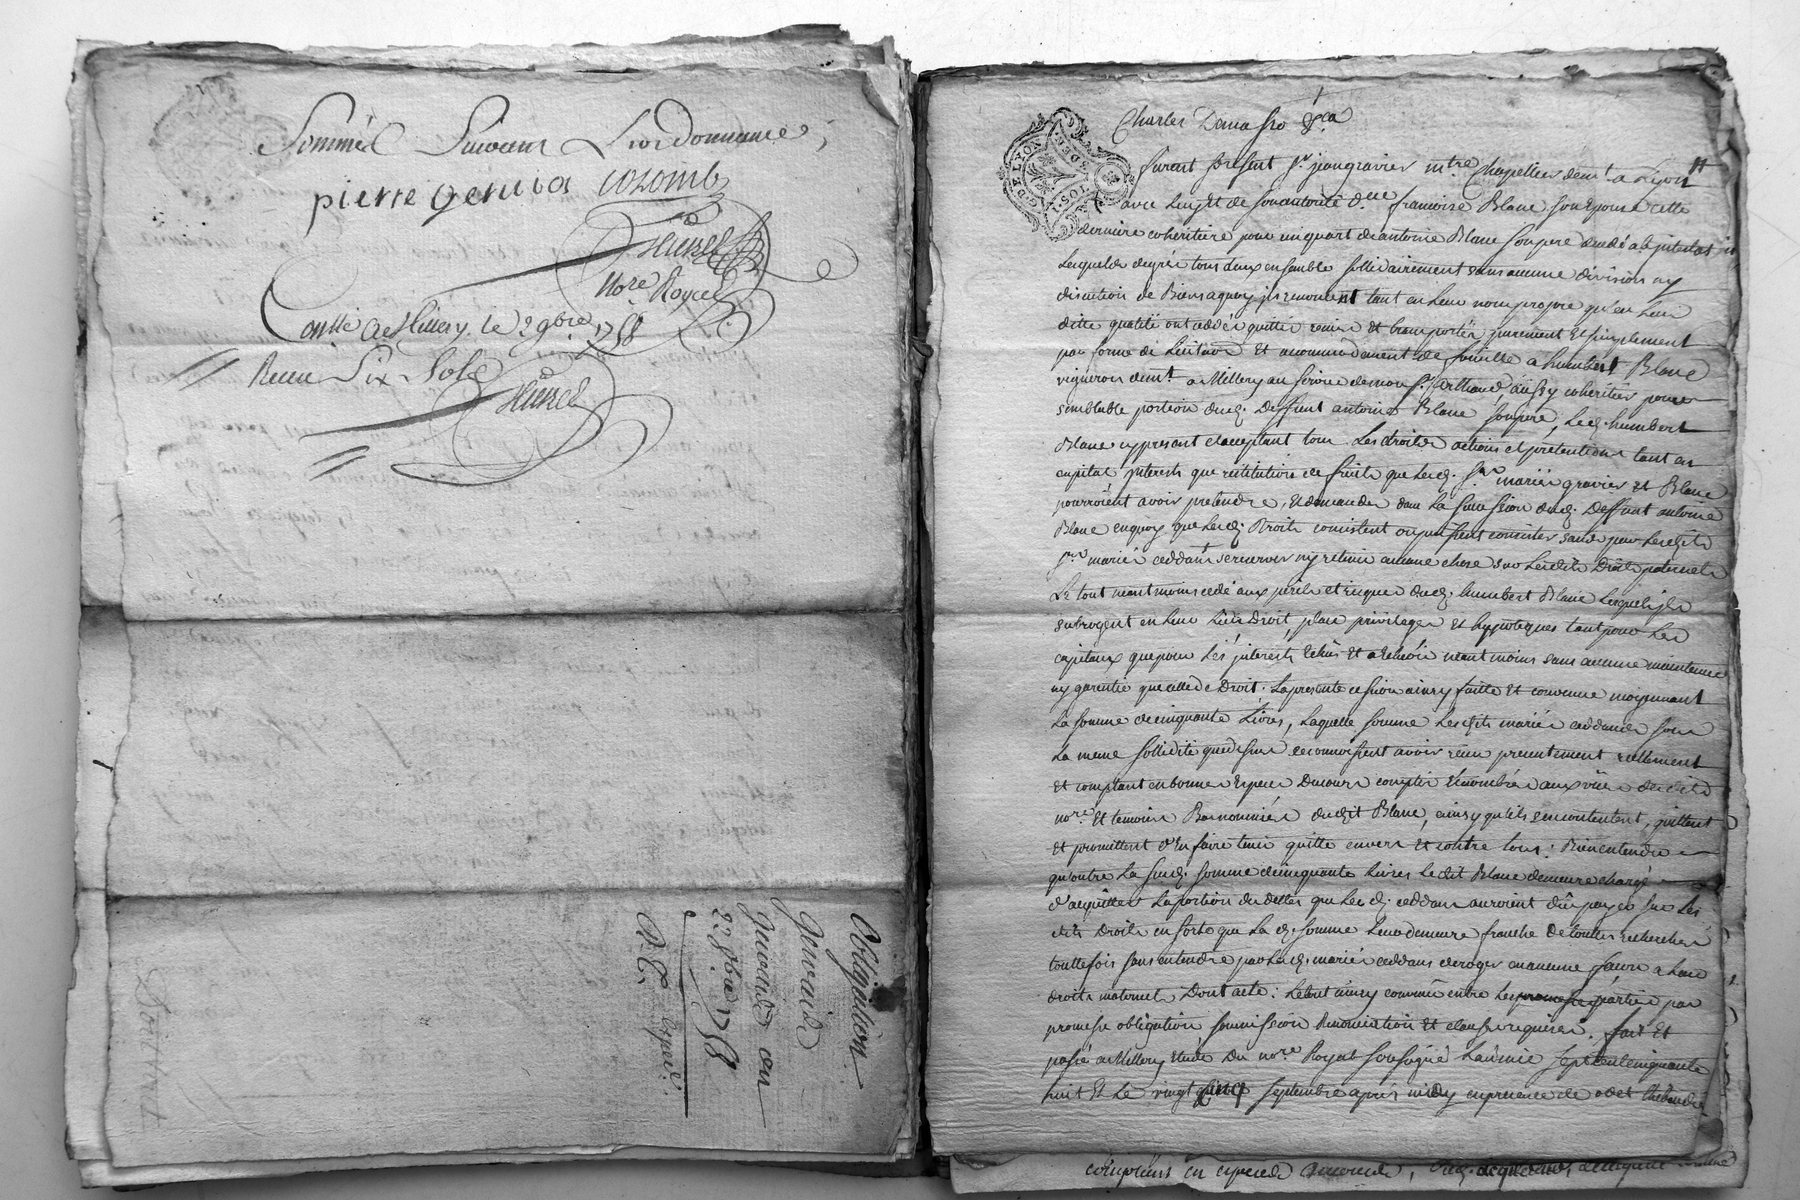 Sommé Suivant L'ordonnance,
pierre gervais colomb
Hurel
No.re Royal
Conllé a Millery, le 2 9bre 1758
Receu Six Sols
Hurel
Obligation.
Gervaid
Gervaid en
22 7bre 1758
Expéd.
G. DE LYON
Charles Demasso &ca
furent presents Sr jean gravier mtre Chapellier demt a Lyon
avec Luy et de son autorité dlle francoise Blanc son Epouse cette
derniere coheritiere pour un quart de antoine Blanc son pere decedé ab intestat
Lesquels de gré tous deux ensemble sollidairement sans aucune division ny
discution de Biens a quoy ils renoncent tant en Leur nom propre qu'en Leur
ditte qualité ont cedé quitté remis et transporté purement et simplement
par forme de Licitaon Et accommodement de famille a humbert Blanc
vigneron demt a Millery au service de monsr arthaud, aussy coheritier pour
semblable portion dud. Deffunt antoine Blanc son pere, Led. humbert
Blanc icy present et acceptant tous Les droits actions et pretentions tant en
capital interests que restitution de fruits que Lesd. mariés gravier et Blanc
pourroient avoir pretendre, et demander dans La succession dud. Deffunt antoine
Blanc en quoy que Lesd. Droits consistent ou puissent consister sans par Lesdits
mariés ceddants se reserver ny retenir aucune chose sur Lesdits Droits paternels
Le tout neantmoins cedé aux perils et risques dud. humbert Blanc Lequel ils
subrogent en Leur Lieu Droit, place privileges et hypoteques tant pour Les
capitaux que pour Les interests Echus et a Echeoir neantmoins sans aucune maintenue
ny garentie que celle de Droit. La presente cession ainsy faitte et convenue moyennant
La somme de cinquante Livres, Laquelle somme Lesdits mariés ceddants sous
La meme sollidité que dessus reconnoissent avoir receu presentement reellement
et comptant en bonnes Especes Du cours comptées Et nombrées aux vües dudit
nore Et temoins Bas nommés dudit Blanc, ainsy qu'ils s'en contentent, quittent
et promettent d'En faire tenir quitte envers et contre tous: Bien entendu
qu'outre La susd. somme de cinquante Livres Ledit Blanc demeure chargé
d'acquitter La portion des dettes que Lesd. ceddants auroient dû payer sur Les
dits Droits en sorte que La d. somme Leur demeure franche De touttes recherches
touttefois sans entendre par Lesd. mariés ceddans deroger en aucune façon a Leurs
droits maternels Dont acte: Le tout ainsy convenu entre Les parties par
promesse obligation soumission Renonciation Et clauses requises. fait Et
passé a Millery Etude Du nore Royal soussigné L'an mil sept cent cinquante
huit Et Le vingt cinq septembre après midy en presence de